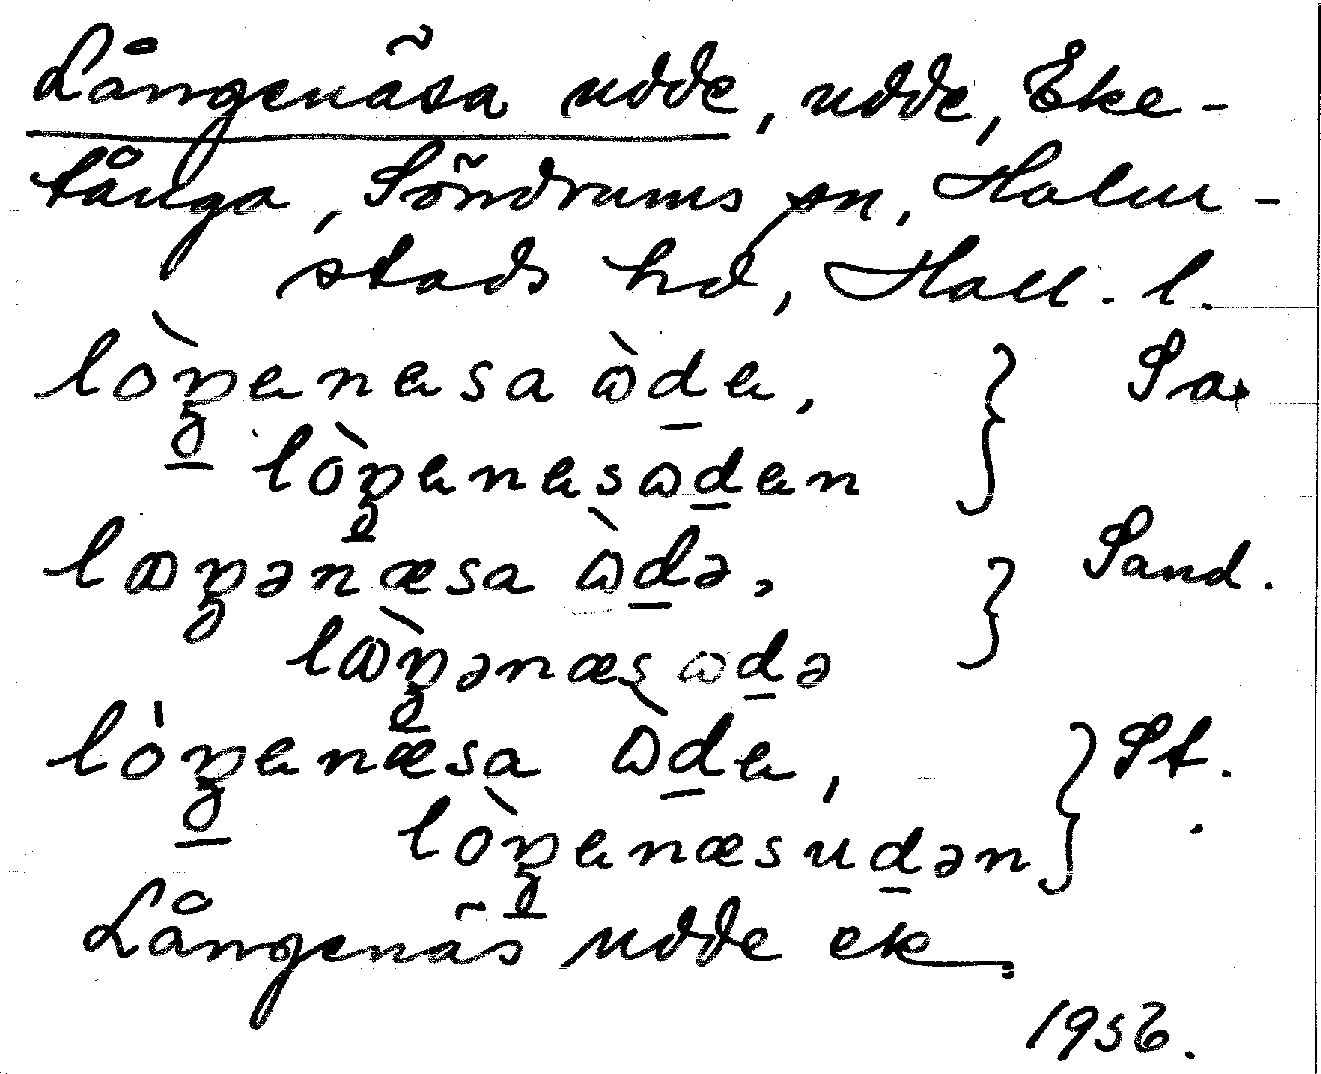 Långenäsa udde, udde, Eke-
tånga, Söndrums sn, Halm-
stads hd, Hall. l.
lòŋenesa òde, } Sa.
lòŋenesωden
lωŋənæsa ὼdə, } Sand.
lὼŋənæsωdə
lòŋenæsa ὼde, } St.
lòŋenæsudən
Långenäs udde ek
1956.